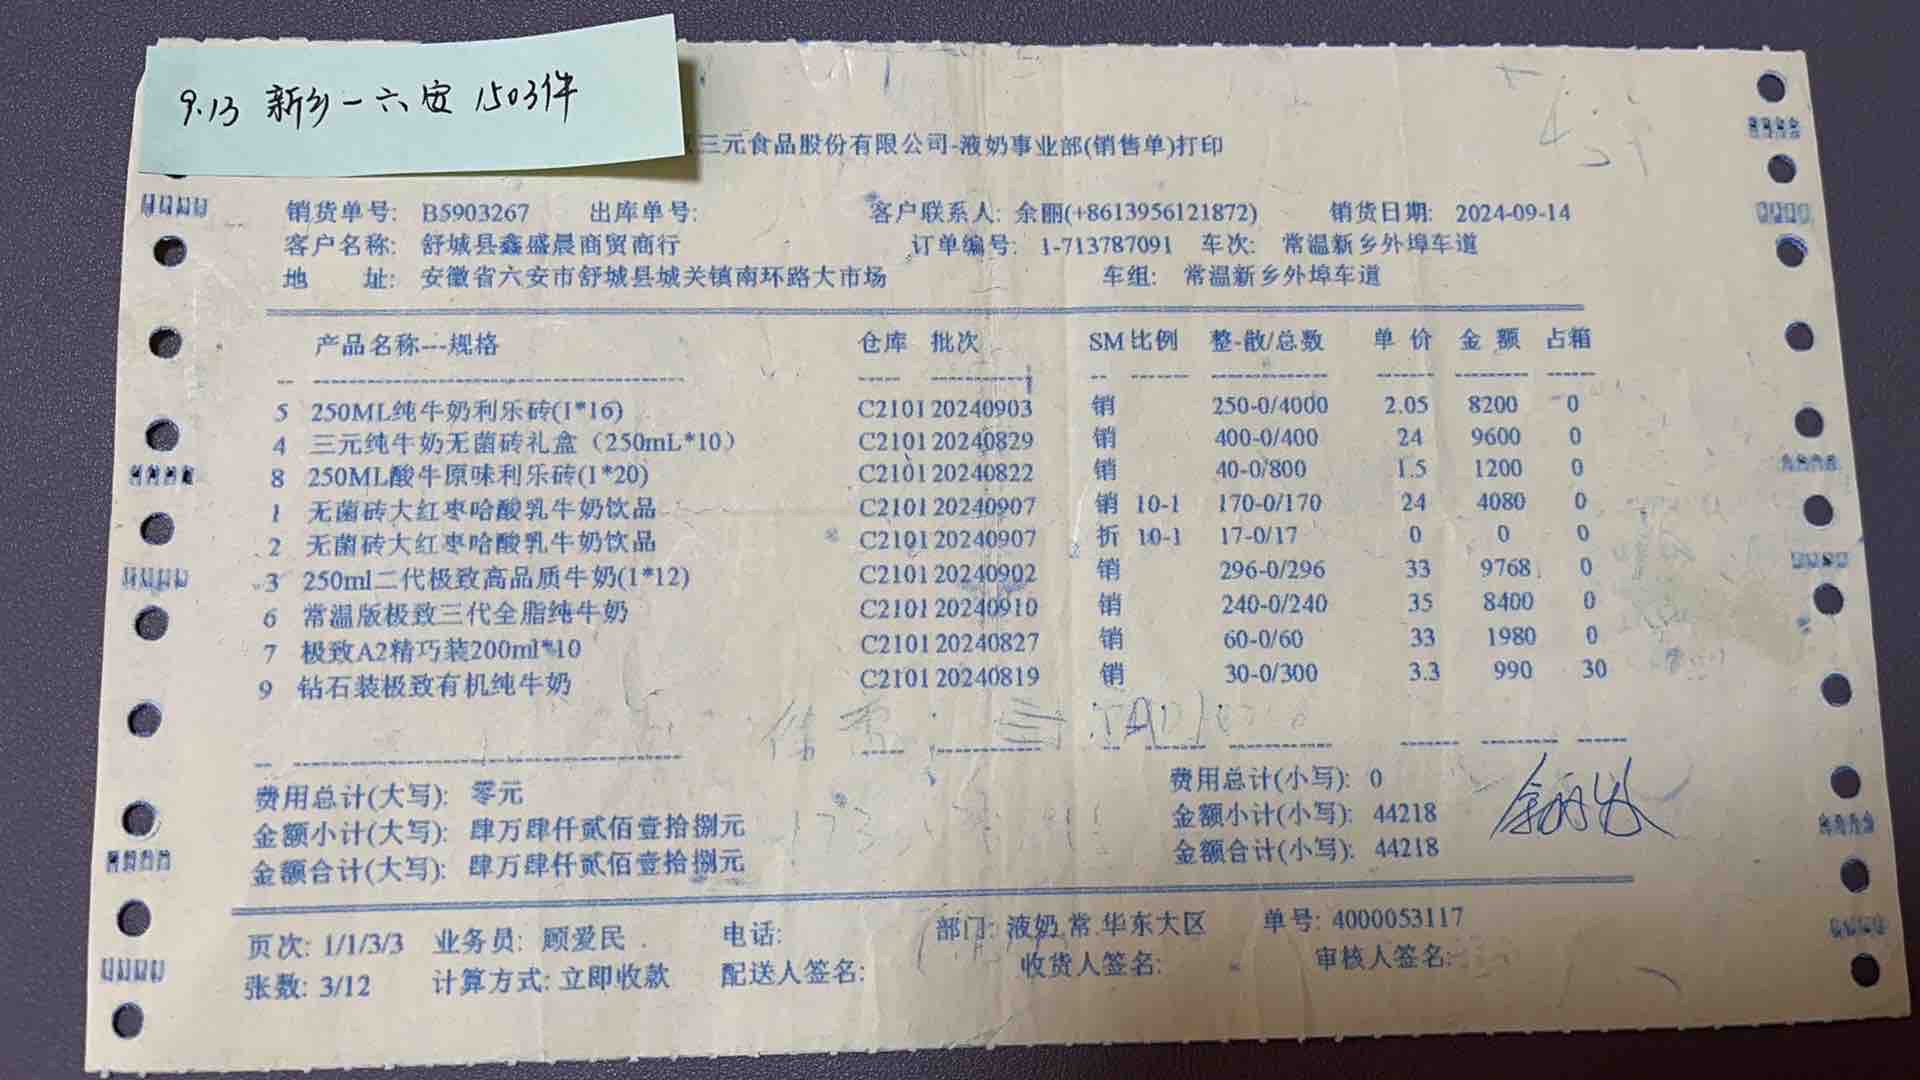 9.13 新乡一六安 1503件
三元食品股份有限公司-液奶事业部(销售单)打印
销货单号: B5903267 出库单号: 客户联系人: 余丽(+8613956121872) 销货日期: 2024-09-14
客户名称: 舒城县鑫盛晨商贸商行 订单编号: 1-713787091 车次: 常温新乡外埠车道
地 址: 安徽省六安市舒城县城关镇南环路大市场 车组: 常温新乡外埠车道
产品名称---规格 仓库 批次 SM 比例 整-散/总数 单 价 金 额 占箱
5 250ML纯牛奶利乐砖(1*16) C2101 20240903 销 250-0/4000 2.05 8200 0
4 三元纯牛奶无菌砖礼盒（250mL*10） C2101 20240829 销 400-0/400 24 9600 0
8 250ML酸牛原味利乐砖(1*20) C2101 20240822 销 40-0/800 1.5 1200 0
1 无菌砖大红枣哈酸乳牛奶饮品 C2101 20240907 销 10-1 170-0/170 24 4080 0
2 无菌砖大红枣哈酸乳牛奶饮品 C2101 20240907 折 10-1 17-0/17 0 0 0
3 250ml二代极致高品质牛奶(1*12) C2101 20240902 销 296-0/296 33 9768 0
6 常温版极致三代全脂纯牛奶 C2101 20240910 销 240-0/240 35 8400 0
7 极致A2精巧装200ml*10 C2101 20240827 销 60-0/60 33 1980 0
9 钻石装极致有机纯牛奶 C2101 20240819 销 30-0/300 3.3 990 30
费用总计(大写): 零元 费用总计(小写): 0
金额小计(大写): 肆万肆仟贰佰壹拾捌元 金额小计(小写): 44218
金额合计(大写): 肆万肆仟贰佰壹拾捌元 金额合计(小写): 44218
页次: 1/1/3/3 业务员: 顾爱民 电话: 部门: 液奶.常.华东大区 单号: 4000053117
张数: 3/12 计算方式: 立即收款 配送人签名: 收货人签名: 审核人签名: